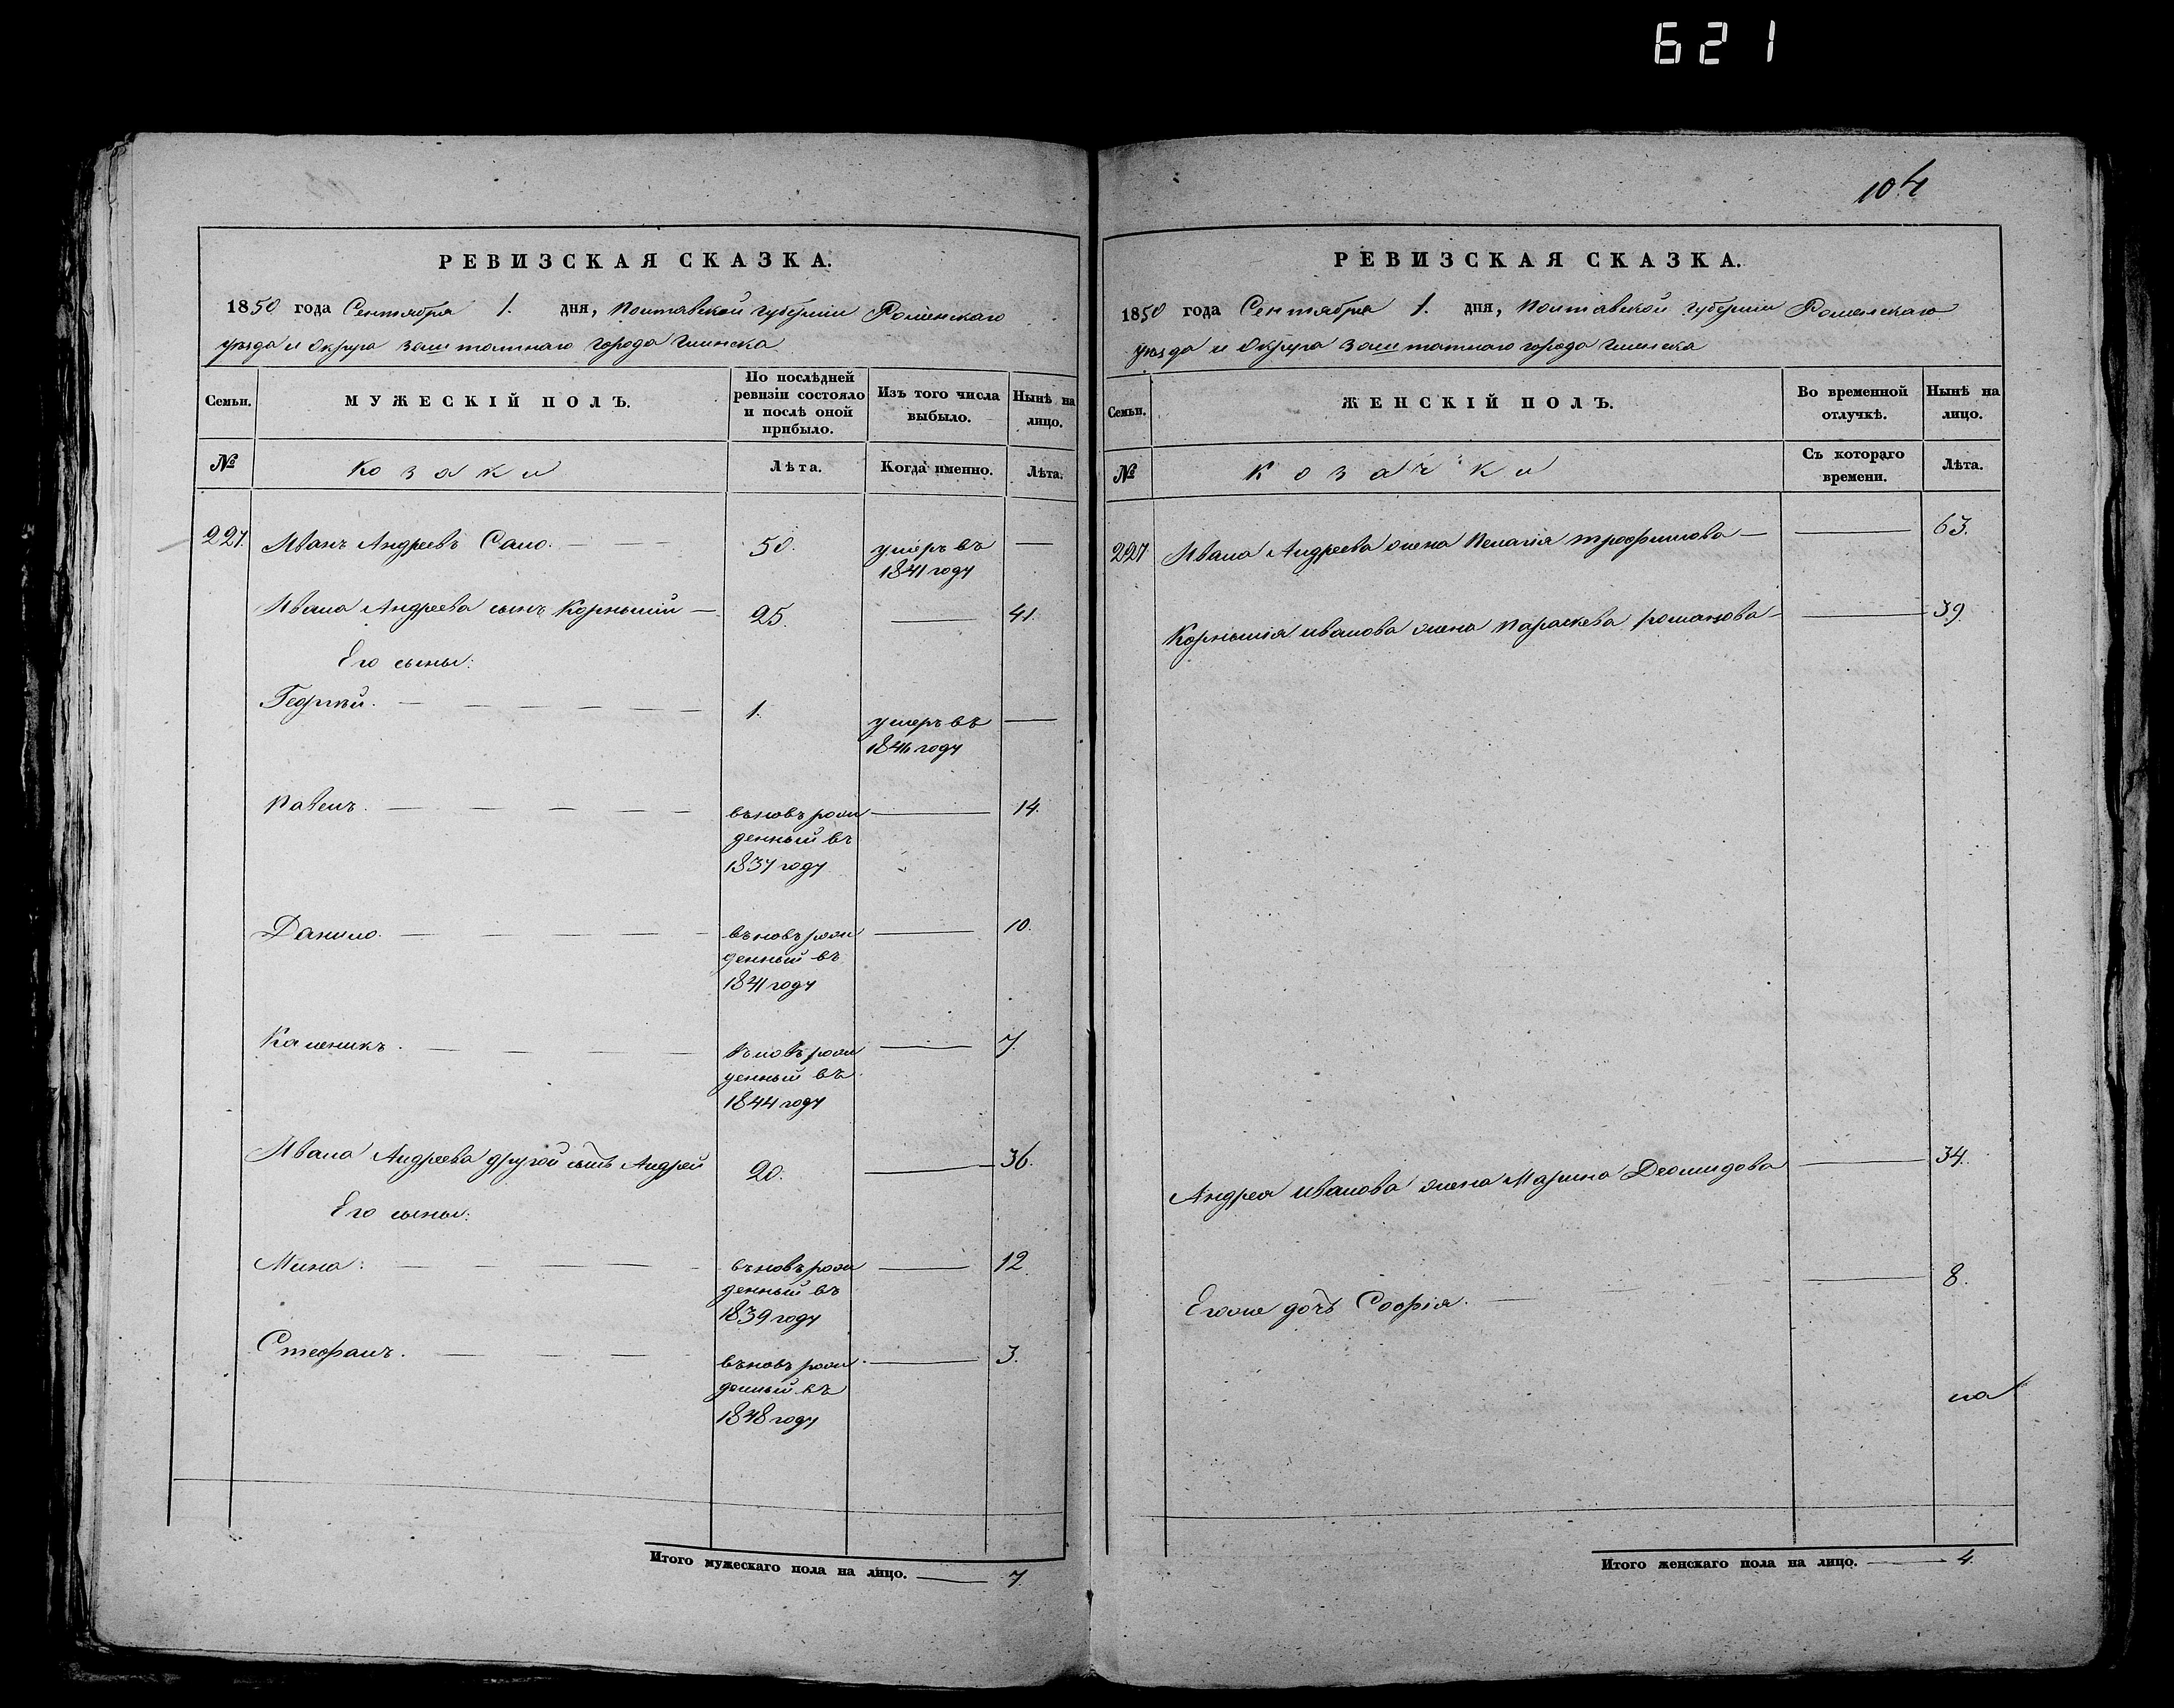 621
104
РЕВИЗСКАЯ СКАЗКА.
1850 года Сентября 1. дня, Полтавской губерніи Роменскаго
уѣзда и Округа заштатнаго города Глинска
Семьи.
МУЖЕСКІЙ ПОЛЪ.
По послѣдней
ревизіи состояло
и послѣ оной
прибыло.
Изъ того числа
выбыло.
Нынѣ на
лицо.
№
Козаки
Лѣта.
Когда именно.
Лѣта.
227. Иванъ Андреевъ Сало. 50. умеръ въ —
1841 году
Ивана Андреева сынъ Корнилій — 25. — 41.
Его сыны:
Георгій. 1. умеръ въ —
1846 году
Павелъ. вьновь рож — 14.
денный въ
1837 году
Данило. вьновь рож — 10.
денный въ
1841 году
Каленикъ. вьновь рож — 7.
денный въ
1844 году
Ивана Андреева другой сынъ Андрей 20. — 36.
Его сыны:
Мина: вьновь рож — 12.
денный въ
1839 году
Стефанъ. вьновь рож — 3.
денный въ
1848 году
Итого мужескаго пола на лицо. — 7.
РЕВИЗСКАЯ СКАЗКА.
1850 года Сентября 1. дня, Полтавской Губерніи Роменскаго
уѣзда и Округа заштатнаго города Глинска
Семьи.
ЖЕНСКІЙ ПОЛЪ.
Во временной
отлучкѣ.
Нынѣ на
лицо.
№
Козачки
Съ котораго
времени.
Лѣта.
227 Ивана Андреева жена Пелагія трофимова — — 63.
Корнилія иванова жена параскева романова — — 39.
Андрея иванова жена Марина Деомидова — 34.
Егоже дочь Софія. — 8.
на
Итого женскаго пола на лицо. — 4.